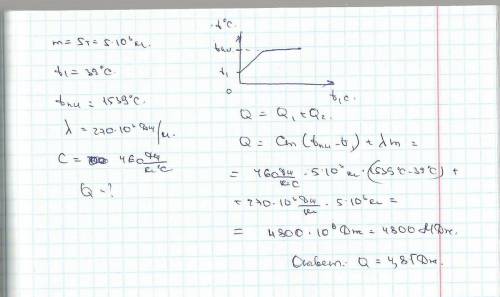 m = 5т = 5·10³ кг.
t₁ = 39°C.
tпл = 1539°C.
λ = 270·10³ Дж/кг.
C = 460 Дж/кг°C
Q = ?
t°C
tпл
t₁
0
t, c.
Q = Q₁ + Q₂.
Q = Cm(tпл - t₁) + λm =
= 460 Дж/кг°C · 5·10³ кг · (1539°C - 39°C) +
+ 270·10³ Дж/кг · 5·10³ кг =
= 4800·10⁶ Дж = 4800 МДж.
Ответ: Q = 4,8 ГДж.